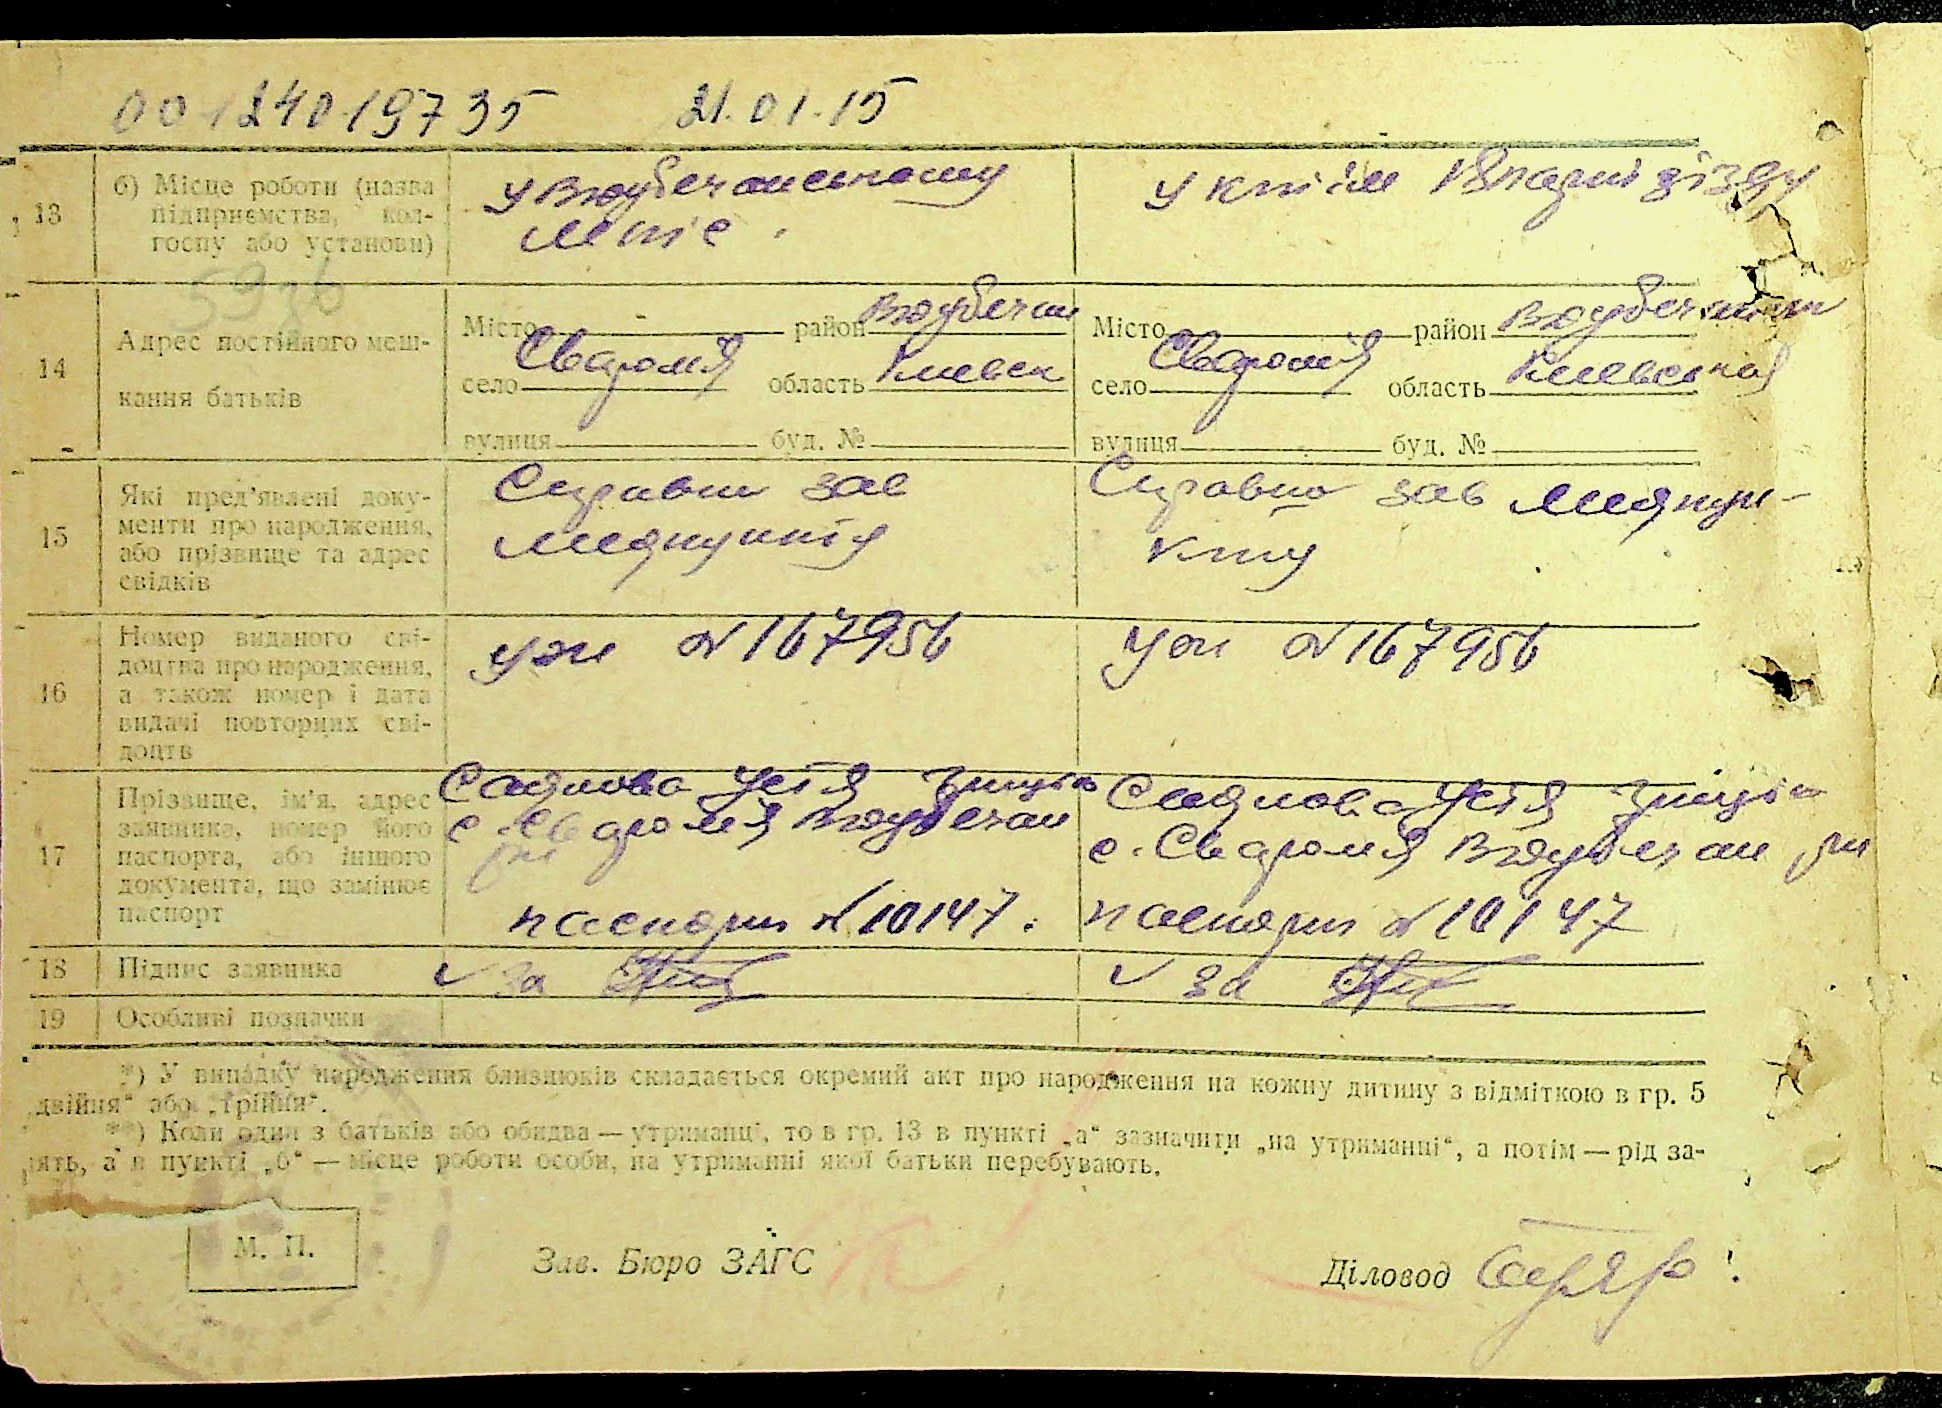 00124019735 21.01.15
13
б) Місце роботи (назва підприємства, кол-
госпу або установи)
у
у
5936
14
Адрес постійного меш-
кання батьків
Місто - район
село Сваромія область Киевск
вулиця буд. №
Місто район
село Сваромія область Киевская
вулиця буд. №
15
Які пред'явлені доку-
менти про народження,
або прізвище та адрес
свідків
Справки зав
медпункту
Справка зав медпун-
кту
16
Номер виданого сві-
доцтва про народження,
а також номер і дата
видачі повторних сві-
доцтв
N 167956
N 167956
17
Прізвище, ім'я, адрес
заявника, номер його
паспорта, або іншого
документа, що замінює
паспорт
Устя
с. Сваромя
паспорт N 10147.
Устя
с. Сваромя
паспорт N 10147
18
Підпис заявника
за
за
19
Особливі позначки
*) У випадку народження близнюків складається окремий акт про народження на кожну дитину з відміткою в гр. 5
„двійня“ або „трійня“.
**) Коли один з батьків або обидва — утриманці, то в гр. 13 в пункті „а“ зазначити „на утриманні“, а потім — рід за-
нять, а в пункті „б“ — місце роботи особи, на утриманні якої батьки перебувають.
М. П.
Зав. Бюро ЗАГС
Діловод